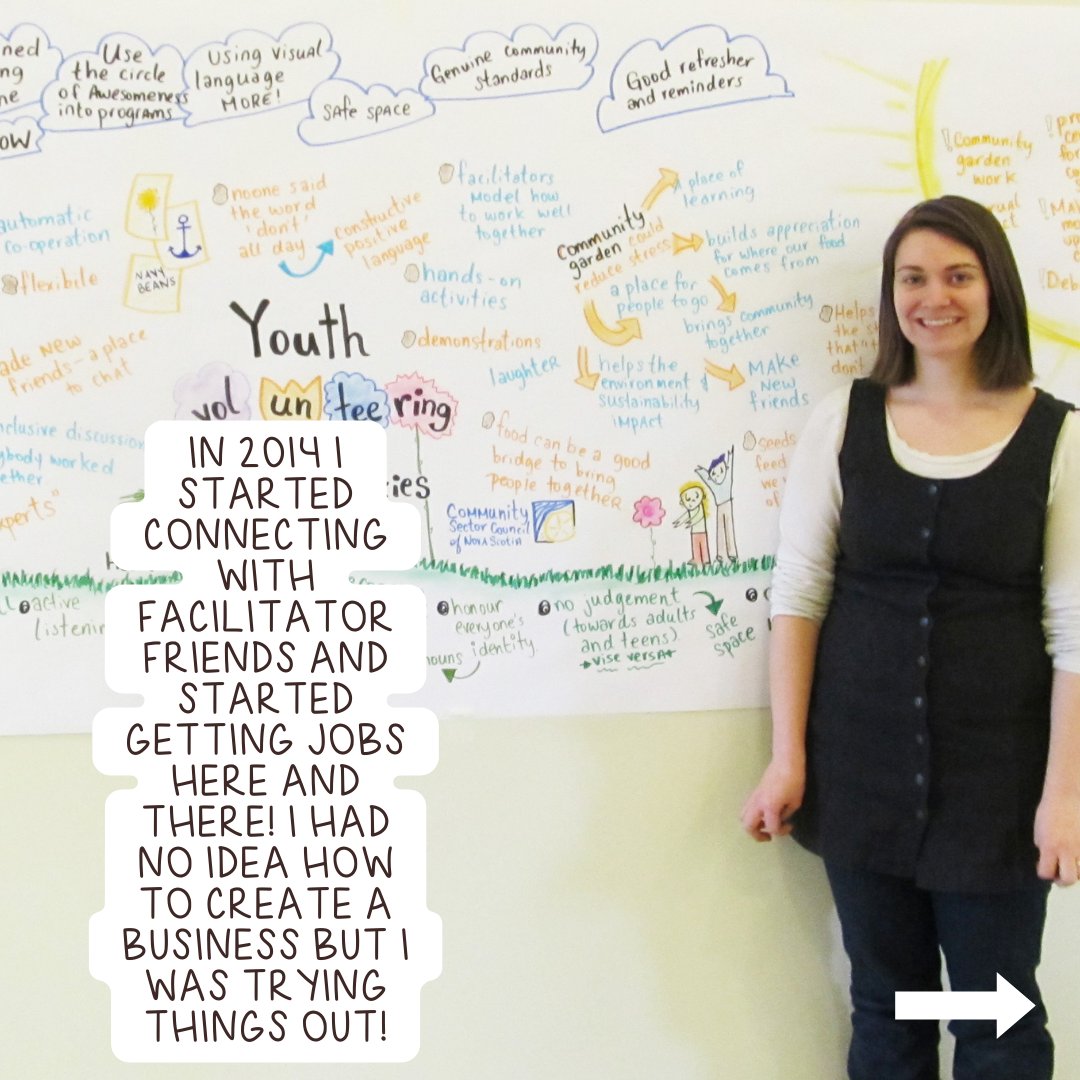 ned
ng
ne
ow
Use
the circle
of Awesomeness
into programs
Using visual
language
MORE!
Safe space
Genuine community
standards
Good refresher
and reminders
automatic
co-operation
flexibile
NAVY
BEANS
noone said
the word
'don't'
all day
constructive
positive
language
facilitators
model how
to work well
together
hands-on
activities
demonstrations
laughter
Community
garden could
reduce stress
a place of
learning
builds appreciation
for where our food
comes from
a place for
people to go
brings community
together
helps the
environment &
sustainability
impact
Make
new
friends
Community
garden
work
Helps
the s
that
don't
ade new
friends - a place
to chat
Youth
vol un tee ring
ies
nclusive discussion
ybody worked
ether
xperts"
food can be a good
bridge to bring
people together
seeds
feed
we
of
Community
Sector Council
of Nova Scotia
active
listenin
honour
everyone's
identity.
nouns
no judgement
(towards adults
and teens)
vise versa
safe
space
IN 2014 I
STARTED
CONNECTING
WITH
FACILITATOR
FRIENDS AND
STARTED
GETTING JOBS
HERE AND
THERE! I HAD
NO IDEA HOW
TO CREATE A
BUSINESS BUT I
WAS TRYING
THINGS OUT!